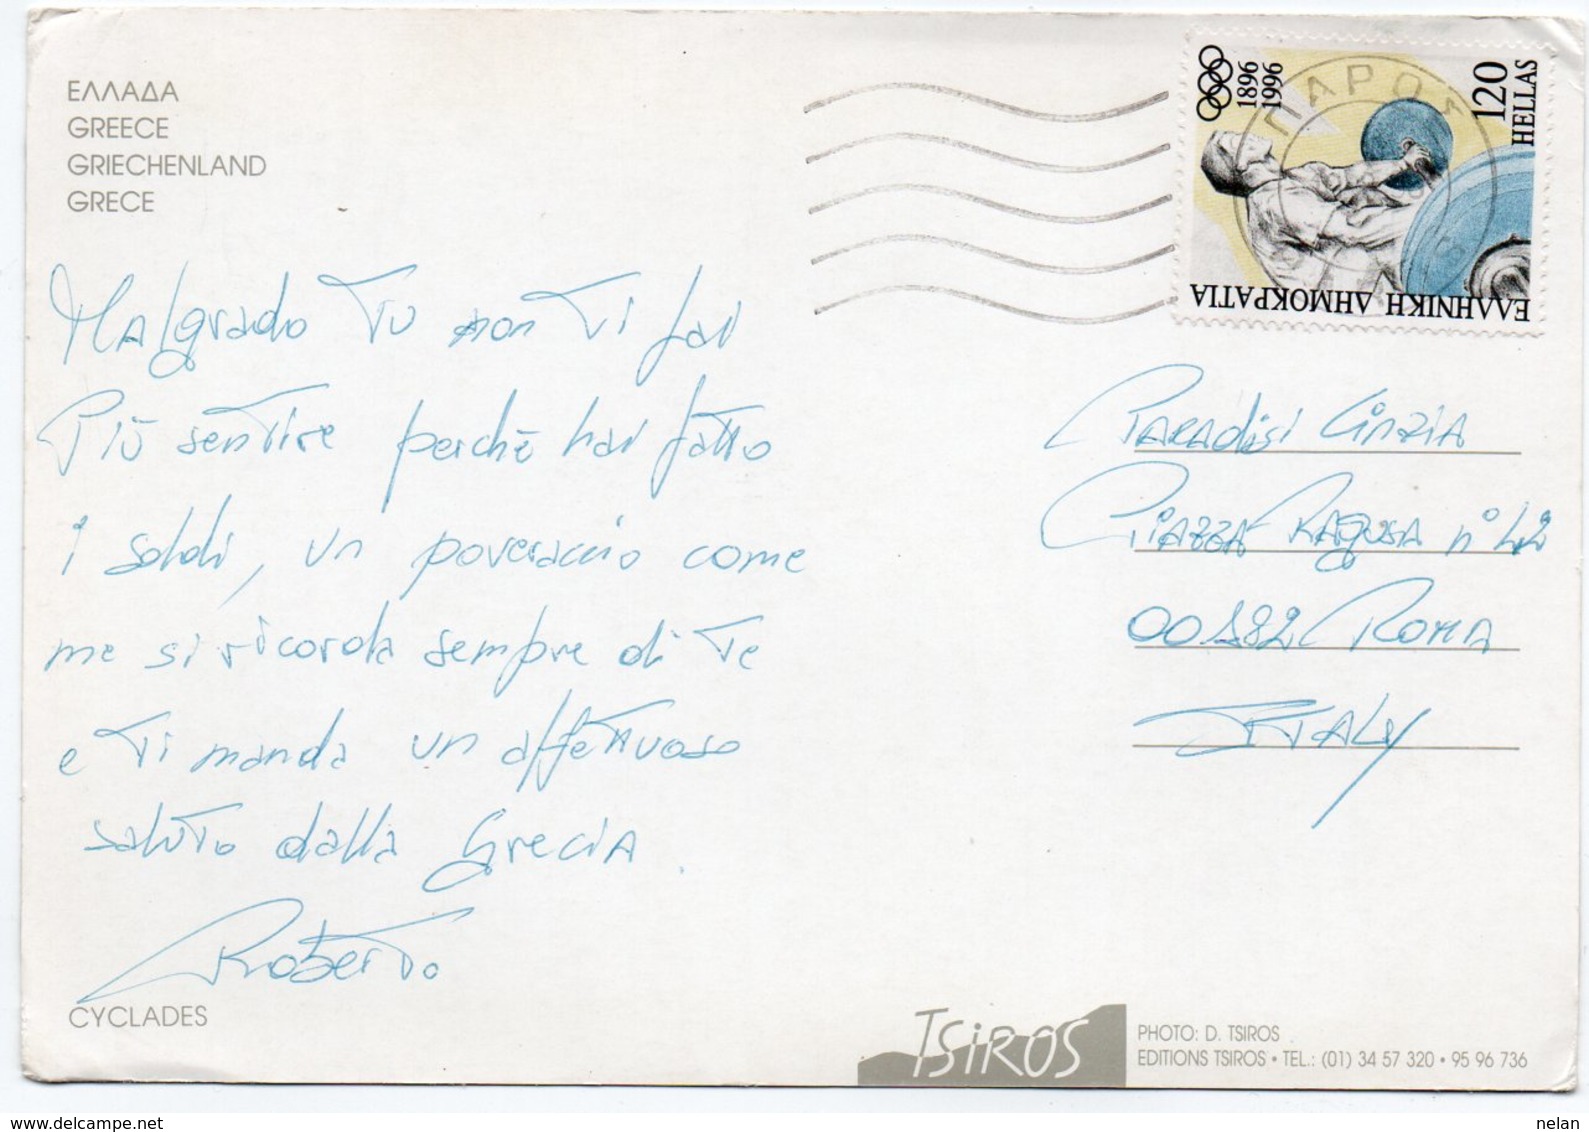 ΕΛΛΑΔΑ
GREECE
GRIECHENLAND
GRECE
1896
1996
120
HELLAS
ΕΛΛΗΝΙΚΗ ΔΗΜΟΚΡΑΤΙΑ
ΠΑΡΟΣ
Malgrado Tu non Ti fai
Più sentire perchè hai fatto
i soldi, un poveraccio come
me si ricorda sempre di Te
e Ti manda un affettuoso
saluto dalla Grecia.
Roberto
Paradisi Cinzia
Piazza Ragusa n° 42
00182 Roma
Italy
CYCLADES
TSiROS
PHOTO: D. TSIROS
EDITIONS TSIROS • TEL.: (01) 34 57 320 • 95 96 736
www.delcampe.net
nelan